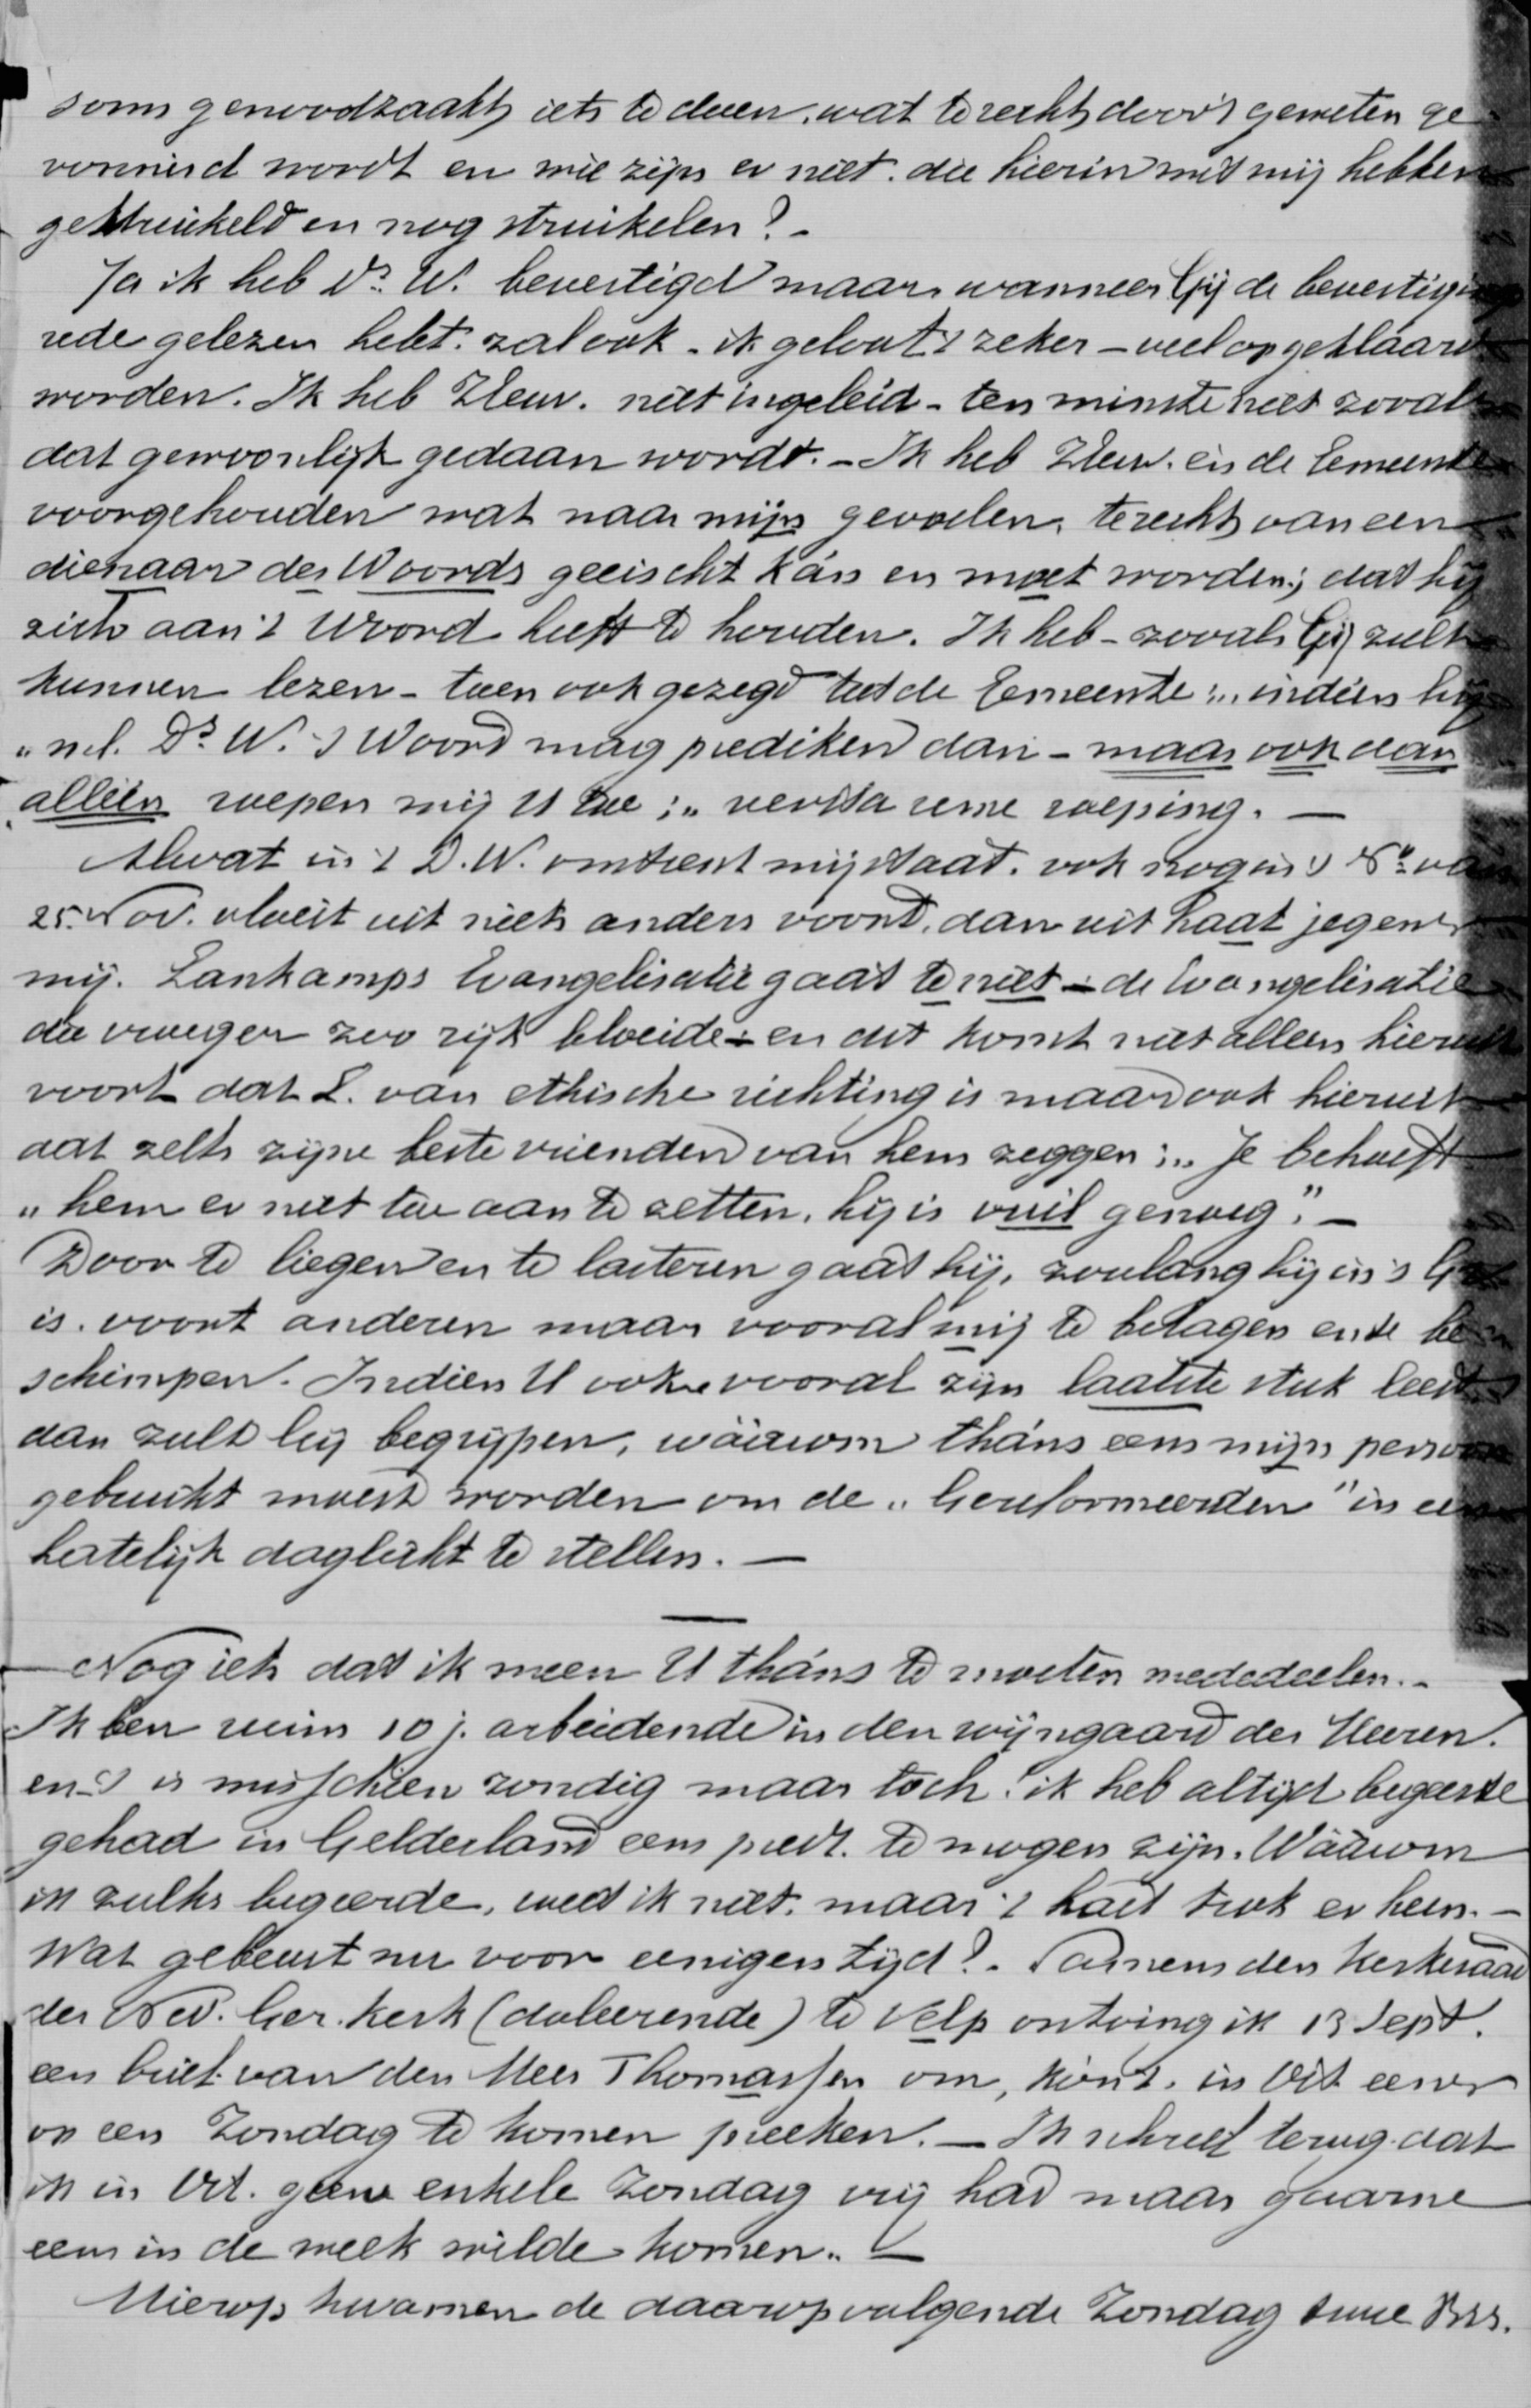 soms genoodzaakt iets te doen, wat terecht door 't geweten ge-
vonnisd wordt en wie zijn er niet, die hierin met mij hebben
gestruikeld en nog struikelen? -
Ja ik heb Ds. W. bevestigd maar wanneer Gij de bevestigings
rede gelezen hebt, zal ook - ik geloof 't zeker - veel opgeklaard
worden. Ik heb ZEerw. niet ingeleid - ten minste niet zooals
dat gewoonlijk gedaan wordt. - Ik heb ZEerw. en de Gemeente
voorgehouden wat naar mijn gevoelen, terecht van een
dienaar des Woords geëischt kán en moet worden; dat hij
zich aan 't Woord heeft te houden. Ik heb - zooals Gij zult
kunnen lezen - toen ook gezegd tot de Gemeente: „indien hij
„nl. Ds. W. 't Woord mag prediken dan - maar ook dan
alleen roepen wij U toe: „ uwe roeping. —
Alwat in 't D.W. omtrent mij staat, ook nog in 't No. van
25 Nov. vloeit uit niets anders voort, dan uit haat jegens
mij. Lankamps Evangelisatie gaat te niet - de Evangelisatie
die vroeger zoo rijk bloeide - en dit komt niet alleen hieruit
voort dat L. van ethische richting is maar ook hieruit
dat zelfs zijne beste vrienden van hem zeggen: „Je behoeft
„hem er niet toe aan te zetten, hij is vuil genoeg." —
Door te liegen en te lasteren gaat hij, zoolang hij in 's
is, voort anderen maar vooral mij te belagen en te be-
schimpen. Indien U ook vooral zijn laatste stuk leest,
dan zult Gij begrijpen, wáárom tháns eens mijn persoon
gebruikt moest worden om de „Gereformeerden" in een
hatelijk daglicht te stellen. —
—
Nog iets dat ik meen U tháns te moeten mededeelen. -
Ik ben ruim 10 j. arbeidende in den wijngaard des Heeren.
en 't is misschien zondig maar toch: ik heb altijd begeerte
gehad in Gelderland eens predt. te mogen zijn. Wáárom
ik zulks begeerde, weet ik niet, maar 't hart trok er heen. -
Wat gebeurt nu voor eenigen tijd? - Namens den Kerkeraad
der Ned. Ger. Kerk (doleerende) te Velp ontving ik 13 Sept.
een brief van den Heer Thomassen om, kon 't, in Oct. eens
op een Zondag te komen preeken. — Ik schreef terug dat
ik in Oct. geene enkele Zondag vrij had maar gaarne
eens in de week wilde komen. —
Hierop kwamen de daaropvolgende Zondag twee Brs.